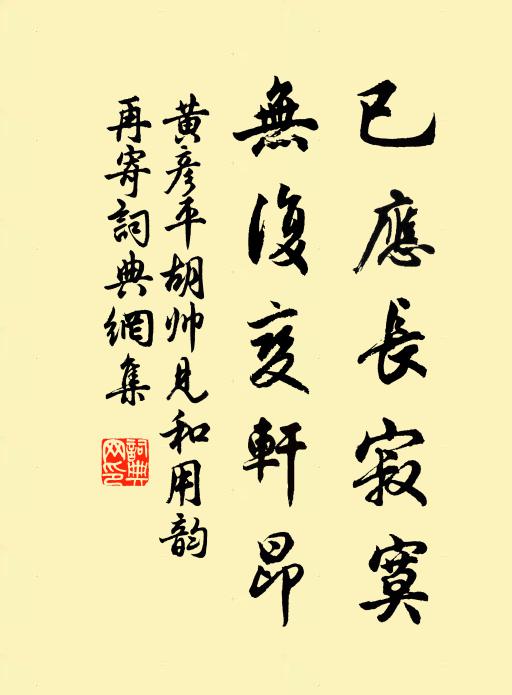 已應長寂寞
無復更軒昂
黃彥平胡帅見和用韵
再寄詞典網集
詞典网印